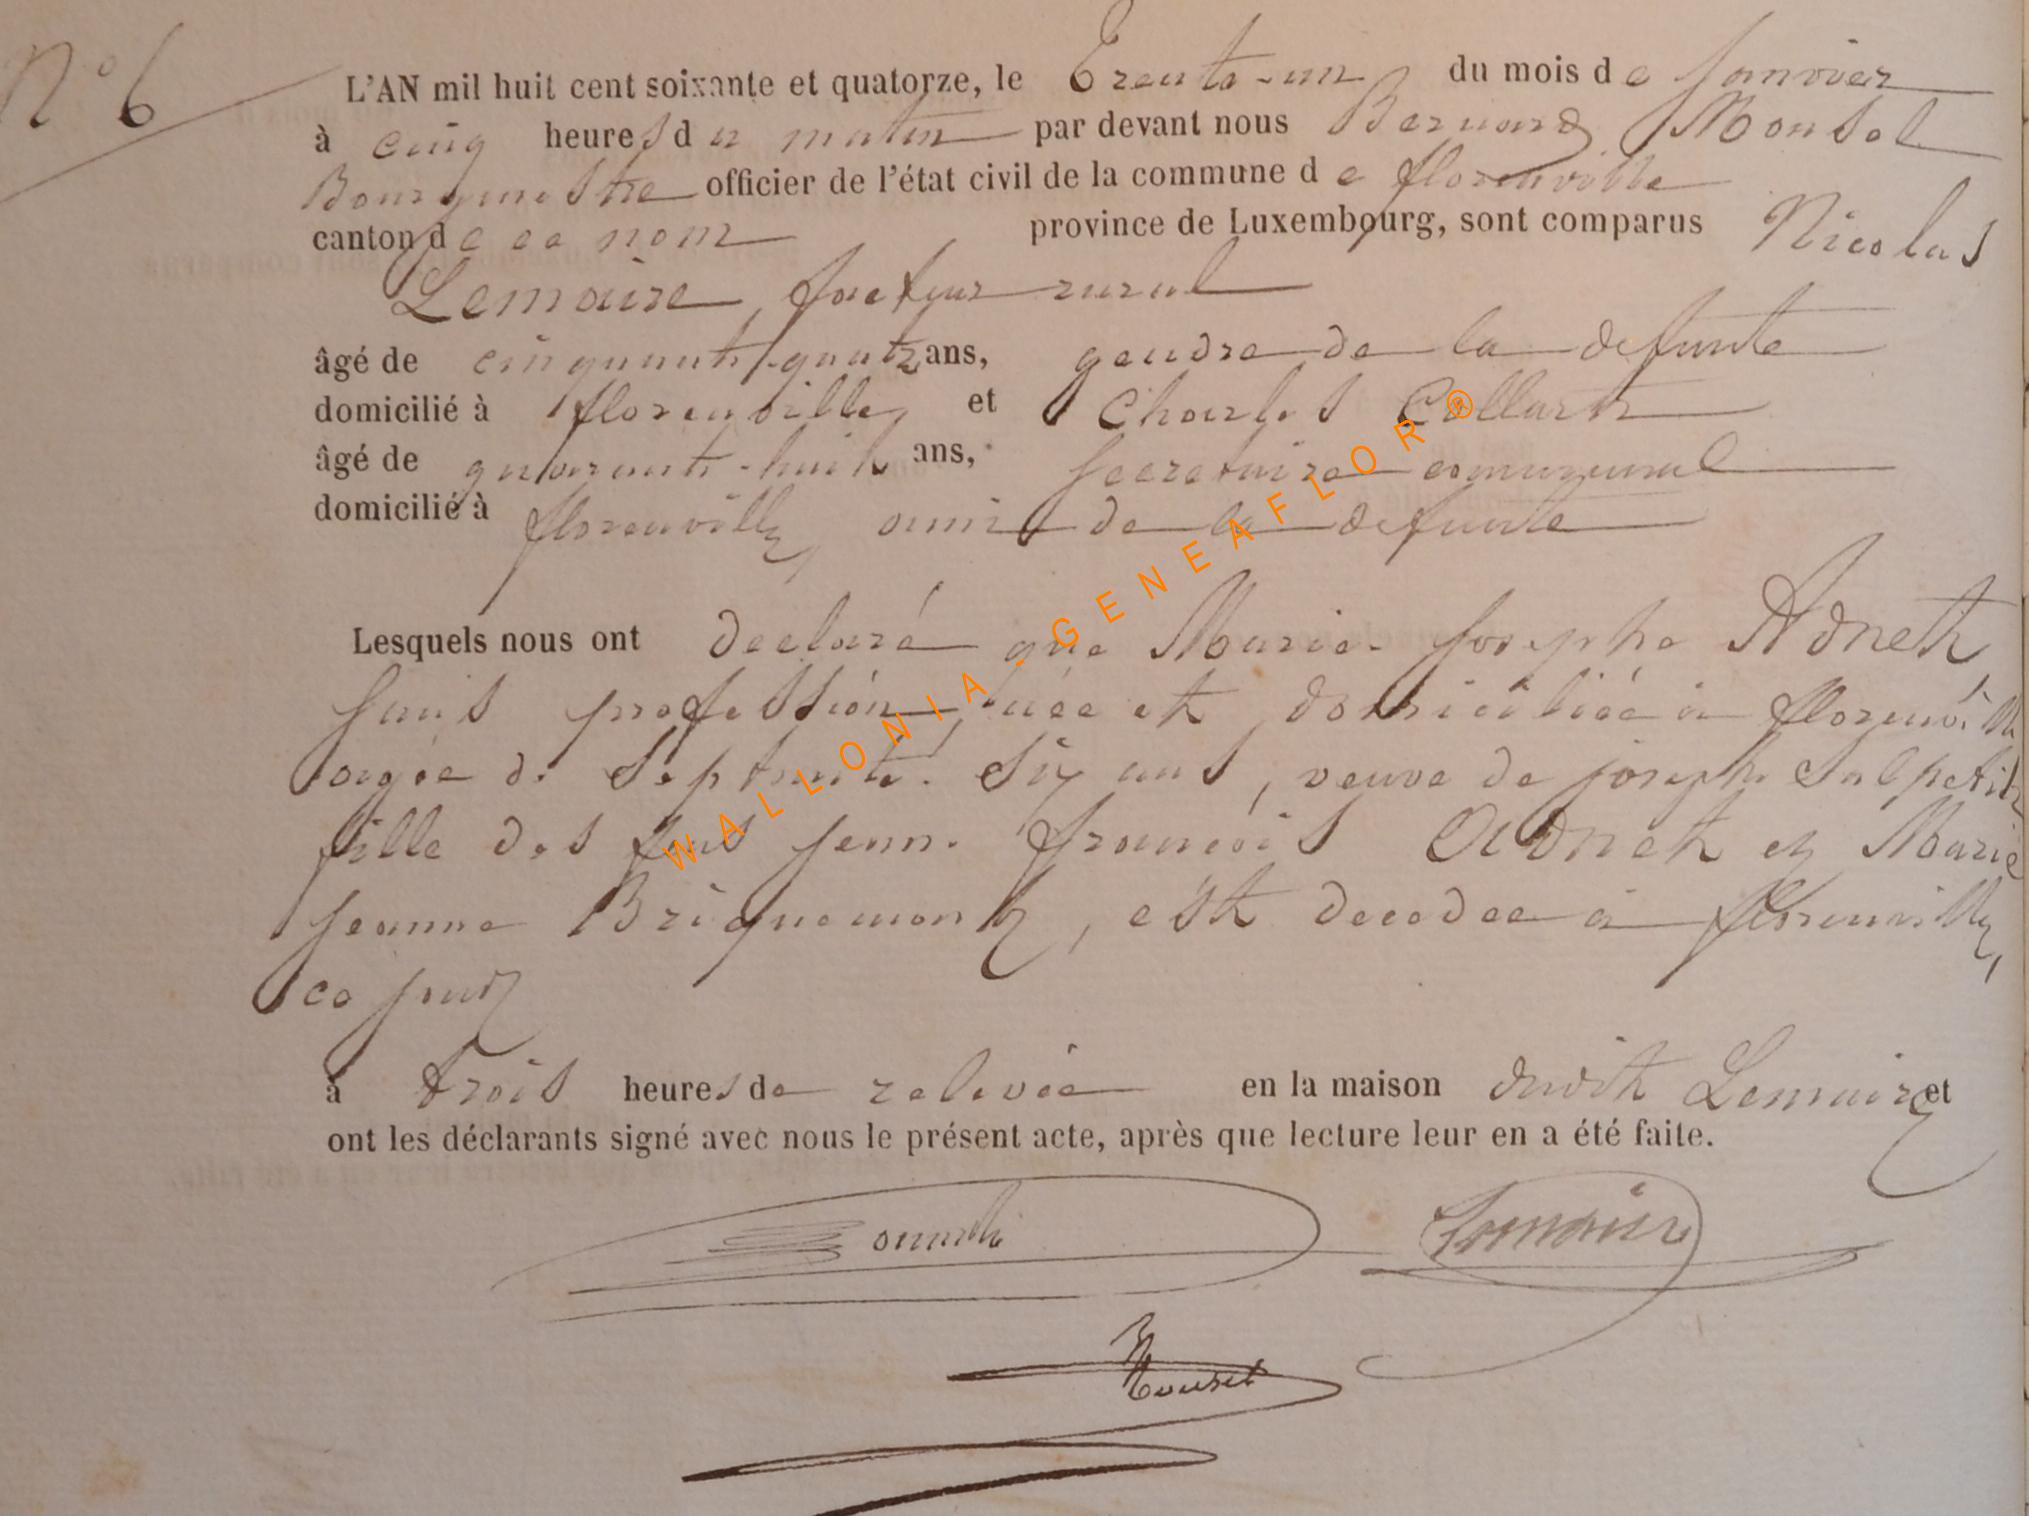 N° 6
L'AN mil huit cent soixante et quatorze, le Trente-un du mois de janvier
à cinq heures du matin par devant nous Bernard Monsel
Bourgmestre officier de l'état civil de la commune de florenville
canton de ce nom province de Luxembourg, sont comparus Nicolas
Lemaire, facteur rural
âgé de cinquante-quatre ans, gendre de la defunte
domicilié à florenville, et Charles Collart
âgé de quarante-huit ans, secretaire communal
domicilié à florenville, ami de la defunte
Lesquels nous ont declaré que Marie-Josephe Adnet,
sans profession, née et domiciliée à florenville
agée de septante-six ans, veuve de joseph
fille des feus jean françois Adnet et Marie
jeanne Briquemont, est decedee à florenville,
ce jour
à trois heures de relevée en la maison dudit Lemaire et
ont les déclarants signé avec nous le présent acte, après que lecture leur en a été faite.
Lemaire
WALLONIA - GENEAFLOR ®